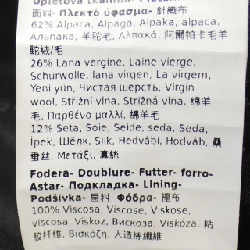 面料- Плекто ύφασμα- 針織布
62% Alpaca, Alpaga, Alpaka, alpaca,
Альпака, 羊駝毛, Αλπακά, 阿爾帕卡毛羊
駝絨/毛
26% Lana vergine, Laine vierge,
Schurwolle, lana virgen, Lã virgem,
Yeni yün, Чистая шерсть, Virgin
wool, Střižní vlna, Strižná vlna, 綿羊
毛, Παρθένο μαλλί, 綿羊毛
12% Seta, Soie, Seide, seda, Seda,
İpek, Шёлк, Silk, Hedvábí, Hodváb, 桑
蠶絲, Μετάξι, 真絲
Fodera- Doublure- Futter- forro-
Astar- Подкладка- Lining-
Podšívka- 里料- Φόδρα- 裡布
100% Viscosa, Viscose, Viskose,
viscosa, Viskoz, Вискоза, Viskóza, 粘
膠纖維, Βισκόζη, 人造絲纖維